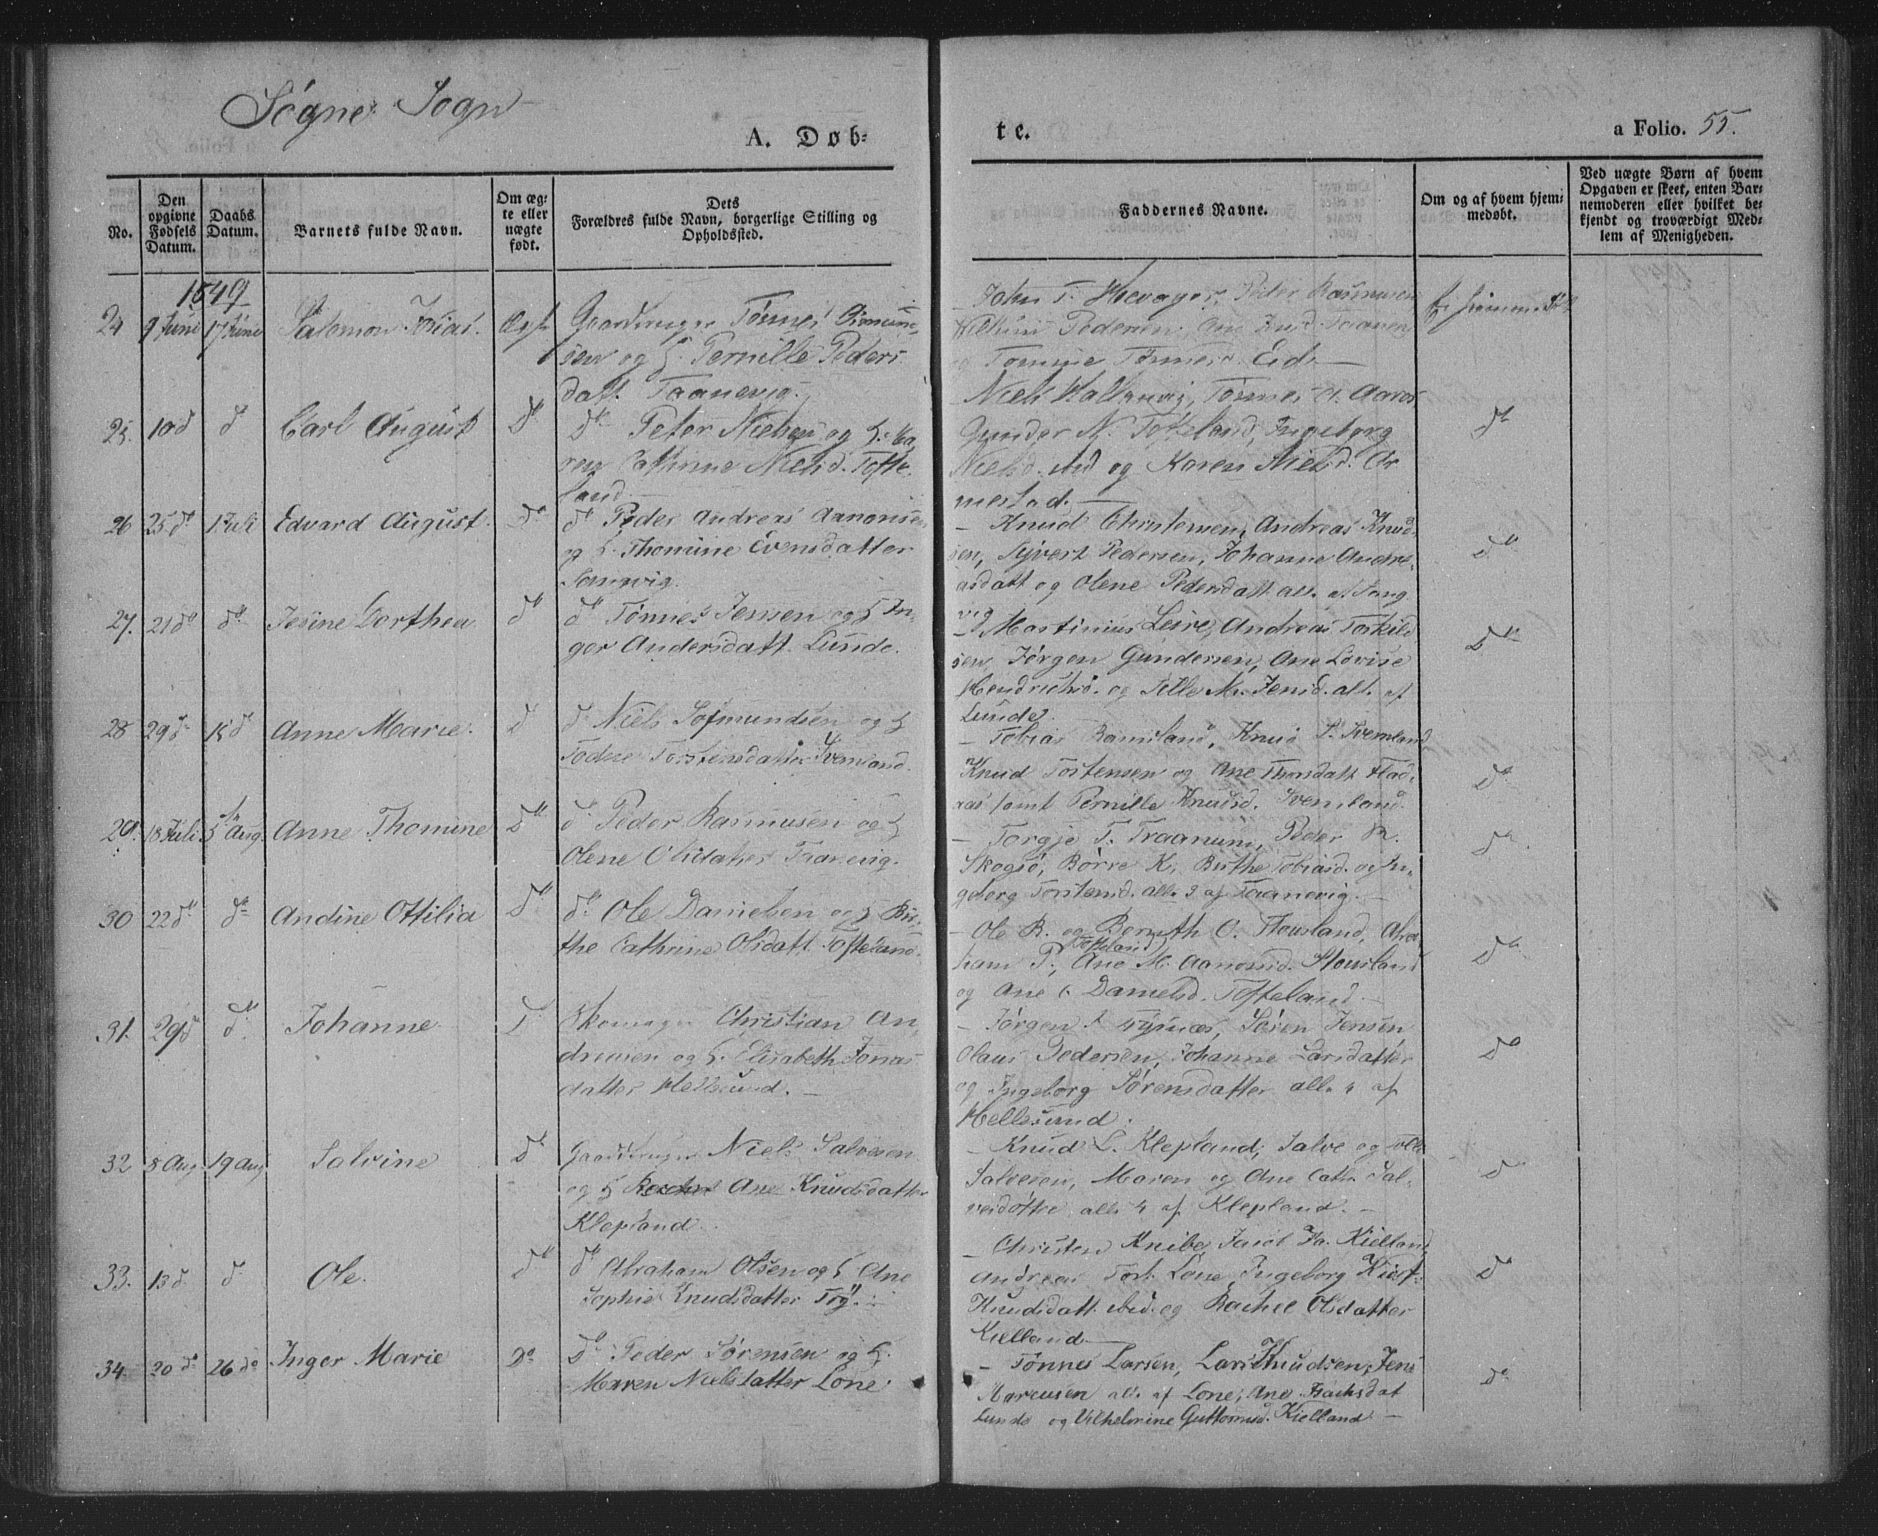 Søgne Sogn
A. Døb-
te.
a Folio. 55.
No.
Den opgivne Fødsels Datum.
Daabs Datum.
Barnets fulde Navn.
Om ægte eller uægte født.
Dets Forældres fulde Navn, borgerlige Stilling og Opholdssted.
Faddernes Navne.
Om og af hvem hjemmedøbt.
Ved uægte Børn af hvem Opgaven er skeet, enten Barnemoderen eller hvilket bekjendt og troværdigt Medlem af Menigheden.
1849
24 9 Juni 17 Juni Salomon Tobias. Ægte Gaardbruger Tønnes
sen og h. Pernille Peders
datt. Taanevig.
John T. Peder Rasmussen
Pedersen, Ane
og Tomine Tønnesd. Eid.
25. 10 d d Carl August Do Do Peter Nielsen og h. Ka
ren Cathrine Nielsd. Tofte
land
Niels Tønnes A. Aaros
Gunder N. Tofteland, Ingeborg
Nielsd. ibid og Karen Nielsd. Ar
mestad.
do
26 25 do 1 Juli Edvard August. Do do Peder Andreas Aanonsen
og h. Thomine Evensdatter
Songvig.
- Knud Christensen, Andreas Knud
sen, Syvert Pedersen, Johanne Andre
asdatt og Olene Pedersdatt alle af Song
vig
Do
27. 21 do do Jesine Dorthea do do Tønnes Jensen og h In
ger Andersdatt. Lunde.
- Martinius Leire, Andreas Torkild
sen, Jørgen Gundersen, Ane Lovise
Hendrichsd. og Tille M. Jensd. alle af
Lunde.
Do
28 29 d 15 d Anne Marie. d d Niels Sofmundsen og h
Todne Torstensdatter Svenland.
- Tobias Ramsland, Knud S. Svenland
Knud Torstensen og Ane Thorsdatt Flad
ras samt Pernille Knudsd. Svenland.
do
29. 18 Juli 5 Aug. Anne Thomine Do d Peder Rasmussen og h
Olene Olsdatter Taanevig.
- Torgje T. Traanum, Peder R.
Skogsø, Børre K, Birthe Tobiasd. og In
geborg Torstensd. alle 3 af Taanevig.
do
30 22 do do Andine Ottilia Do do Ole Danielsen og h Bir
the Cathrine Olsdatt Tofteland.
- Ole R. og Bernth O. Stousland, Abra
ham P. Tofteland, Ane M. Aanonsd. Stousland
og Ane C Danielsd. Tofteland.
Do
31. 29 d do Johanne D Skomager Christian An
dreasen og h. Elisabeth Jonas
datter Hellesund.
- Jørgen Søren Jensen
Olaus Pedersen, Johanne Larsdatter
og Ingeborg Sørensdatter alle 4 af
Hellesund.
Do
32 8 Aug 19 Aug Salvine D Gaardbruger Niels Salvesen
og h Ane Knudsdatter
Klepland.
- Knud L. Klepland, Salve og Ole
Salvesen, Maren og Ane Cath. Sal
vesdøttre alle 4 af Klepland.
D
33. 13 d. d. Ole. Do do Abraham Olsen og h Ane
Sophie Knudsdatter Try.
- Christen Knibe, Kielland,
Andreas Tort. Lone, Ingeborg Kirst.
Knudsdatt. ibid. og Rachel Olsdatter
Kielland
Do
34. 20 do 26 do Inger Marie Do Do Peder Sørensen og h.
Maren Nielsdatter Lone.
- Tønnes Larsen, Lars Knudsen, Jens
Marcusen alle af Lone, Ane Isachsdat
Lunde og Vilhelmine Guttormsd. Kielland
Do